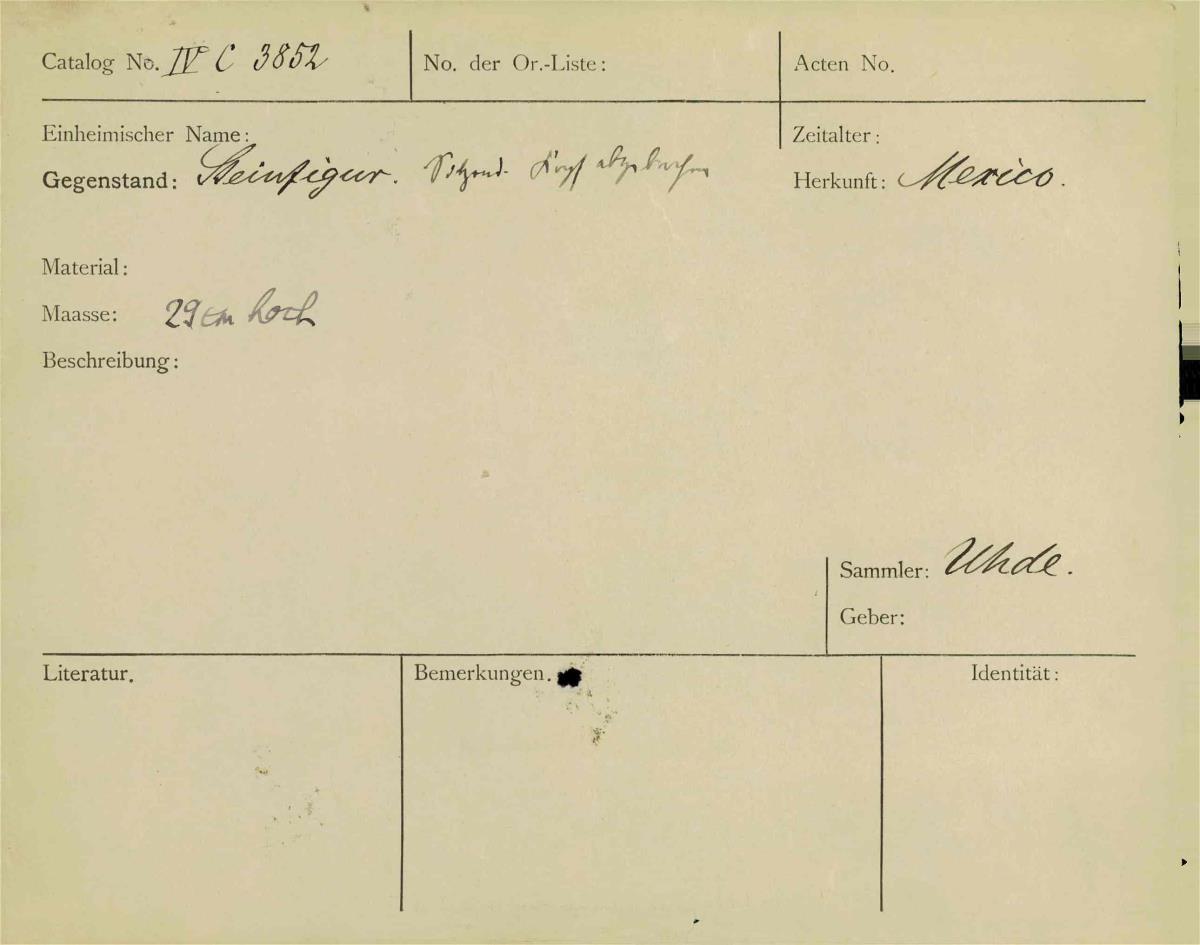 Catalog No. IV C 3852
No. der Or.-Liste:
Acten No.
Einheimischer Name:
Zeitalter:
Gegenstand: Steinfigur. Sitzend. Kopf abgebrochen
Herkunft: Mexico.
Material:
Maasse: 29 cm hoch
Beschreibung:
Sammler: Uhde.
Geber:
Literatur.
Bemerkungen.
Identität: